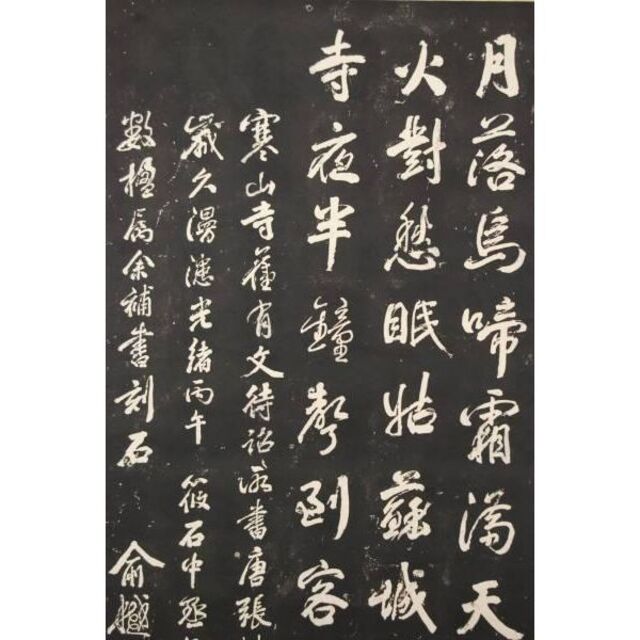 月落烏啼霜滿天
火對愁眠姑蘇城
寺夜半鐘聲到客
寒山寺舊有文待詔所書唐張
歲久漫漶光緒丙午筱石中丞
數楹屬余補書刻石 俞樾